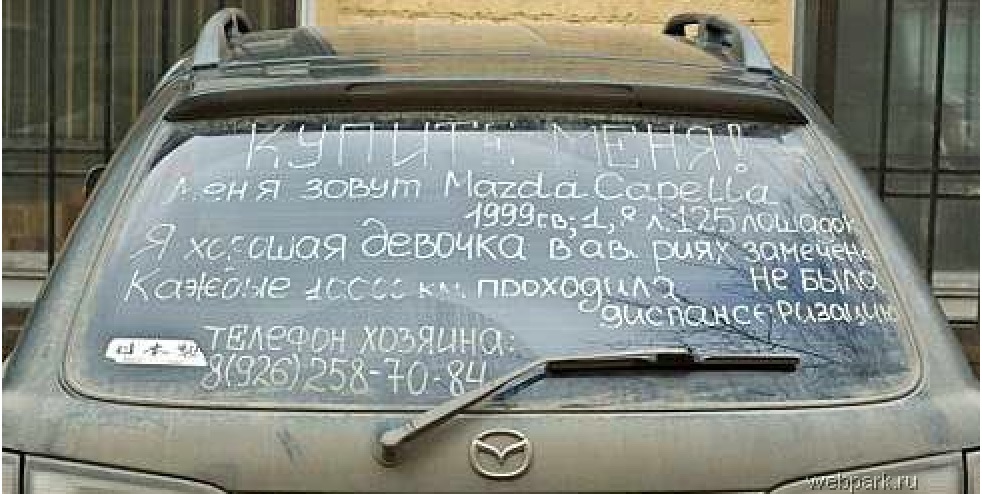 КУПИТЕ МЕНЯ!
Меня зовут Mazda Capella
1999г.в; 1,8 л. 125 лошадок
Я хорошая девочка в авариях замечена
не была
Каждые 10000 км проходила
диспансеризацию
ТЕЛЕФОН ХОЗЯИНА:
8(926)258-70-84
webpark.ru